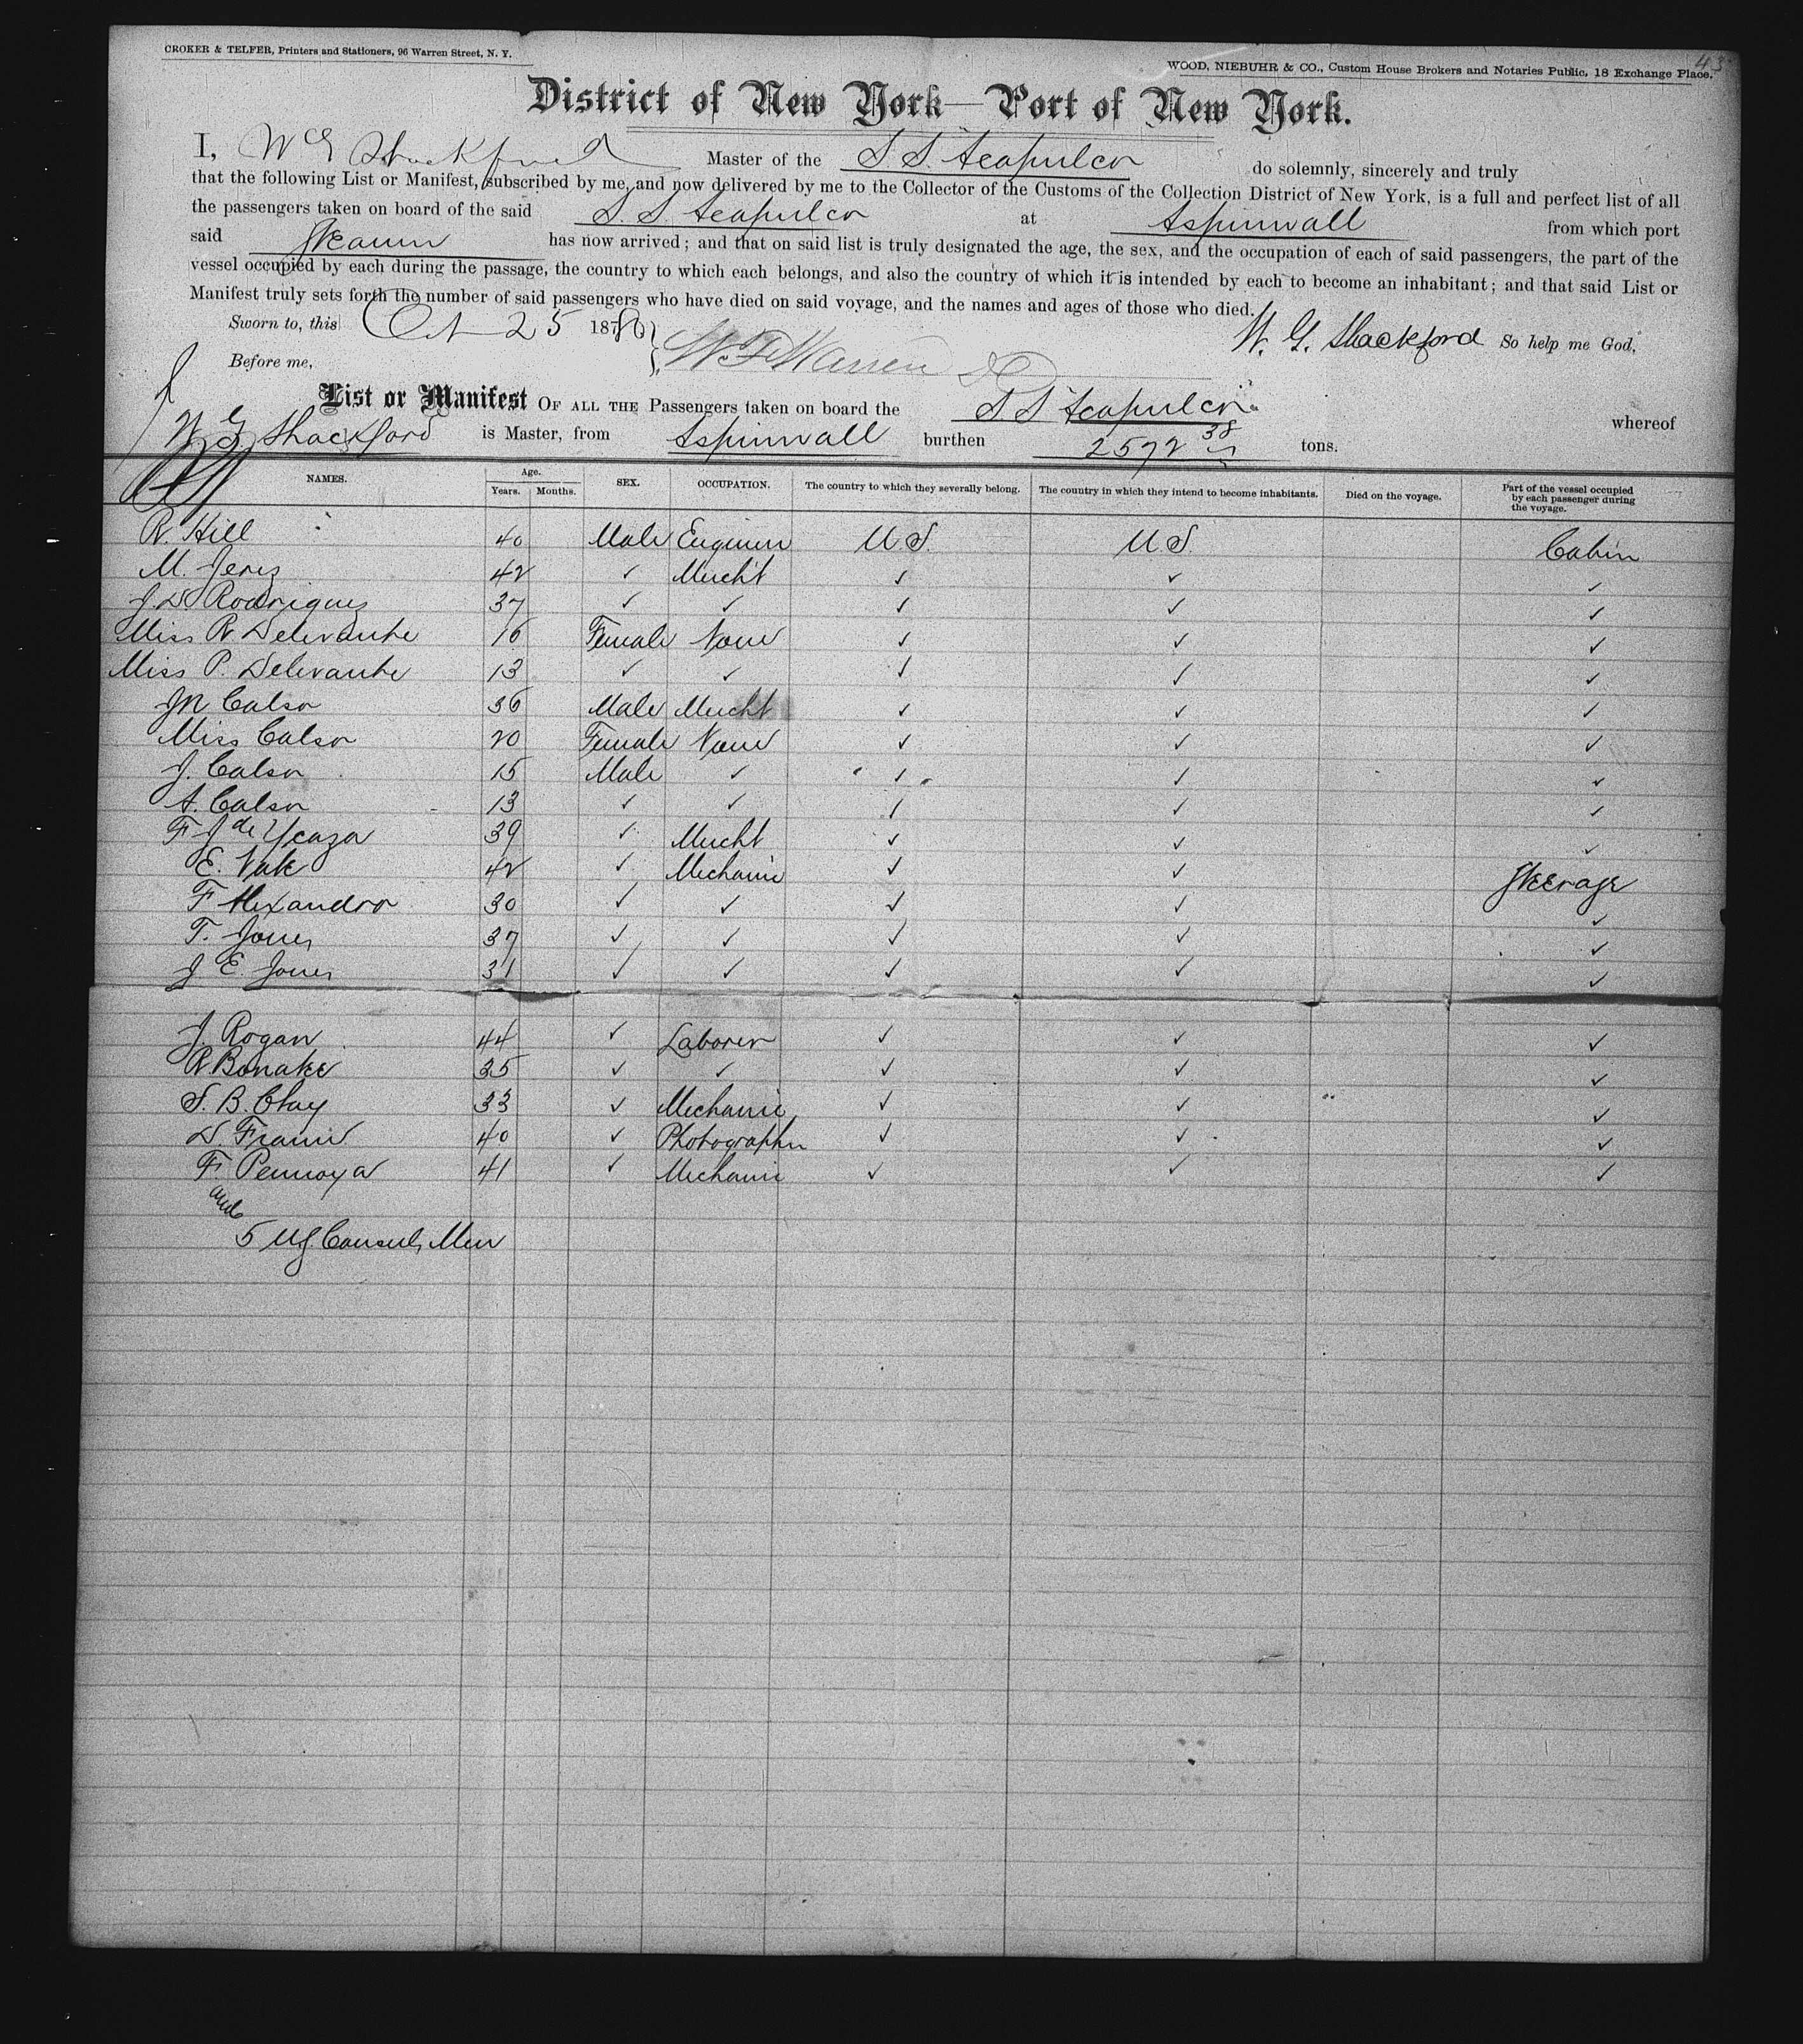 43
CROKER & TELFER, Printers and Stationers, 96 Warren Street, N. Y.
WOOD, NIEBUHR & CO., Custom House Brokers and Notaries Public, 18 Exchange Place.
District of New York—Port of New York.
I, W G Shackford Master of the S. S. Acapulco do solemnly, sincerely and truly
that the following List or Manifest, subscribed by me, and now delivered by me to the Collector of the Customs of the Collection District of New York, is a full and perfect list of all
the passengers taken on board of the said S. S. Acapulco at Aspinwall from which port
said Steamer has now arrived; and that on said list is truly designated the age, the sex, and the occupation of each of said passengers, the part of the
vessel occupied by each during the passage, the country to which each belongs, and also the country of which it is intended by each to become an inhabitant; and that said List or
Manifest truly sets forth the number of said passengers who have died on said voyage, and the names and ages of those who died.
Sworn to, this Oct 25 1880 W. G. Shackford So help me God,
Before me,
List or Manifest OF ALL THE Passengers taken on board the S S Acapulco whereof
W G Shackford is Master, from Aspinwall burthen 2572 38 tons.
NAMES. Age. Years. Months. SEX. OCCUPATION. The country to which they severally belong. The country in which they intend to become inhabitants. Died on the voyage. Part of the vessel occupied by each passenger during the voyage.
R. Hill 40 Male Engineer U S. U. S. Cabin
M. Jerez 42 ✓ Mercht ✓ ✓ ✓
J D Rodriguez 37 ✓ ✓ ✓ ✓ ✓
Miss R Delevante 16 Female None ✓ ✓ ✓
Miss P. Delevante 13 ✓ ✓ ✓ ✓ ✓
Calso 36 Male Mercht ✓ ✓ ✓
Miss Calso 20 Female None ✓ ✓ ✓
J. Calso 15 Male ✓ ✓ ✓ ✓
A. Calso 13 ✓ ✓ ✓ ✓ ✓
F J de Ycaza 39 ✓ Mercht ✓ ✓ ✓
E. 42 ✓ Mechanic ✓ ✓ Steerage
F Alexandro 30 ✓ ✓ ✓ ✓ ✓
T. Jones 37 ✓ ✓ ✓ ✓ ✓
J E. Jones 31 ✓ ✓ ✓ ✓ ✓
J. Rogan 44 ✓ Laborer ✓ ✓ ✓
R Bonake 35 ✓ ✓ ✓ ✓ ✓
S. B. Clay 33 ✓ Mechanic ✓ ✓ ✓
D. 40 ✓ Photographer ✓ ✓ ✓
F. Pennoya 41 ✓ Mechanic ✓ ✓ ✓
and
5 U S. Consuls Men